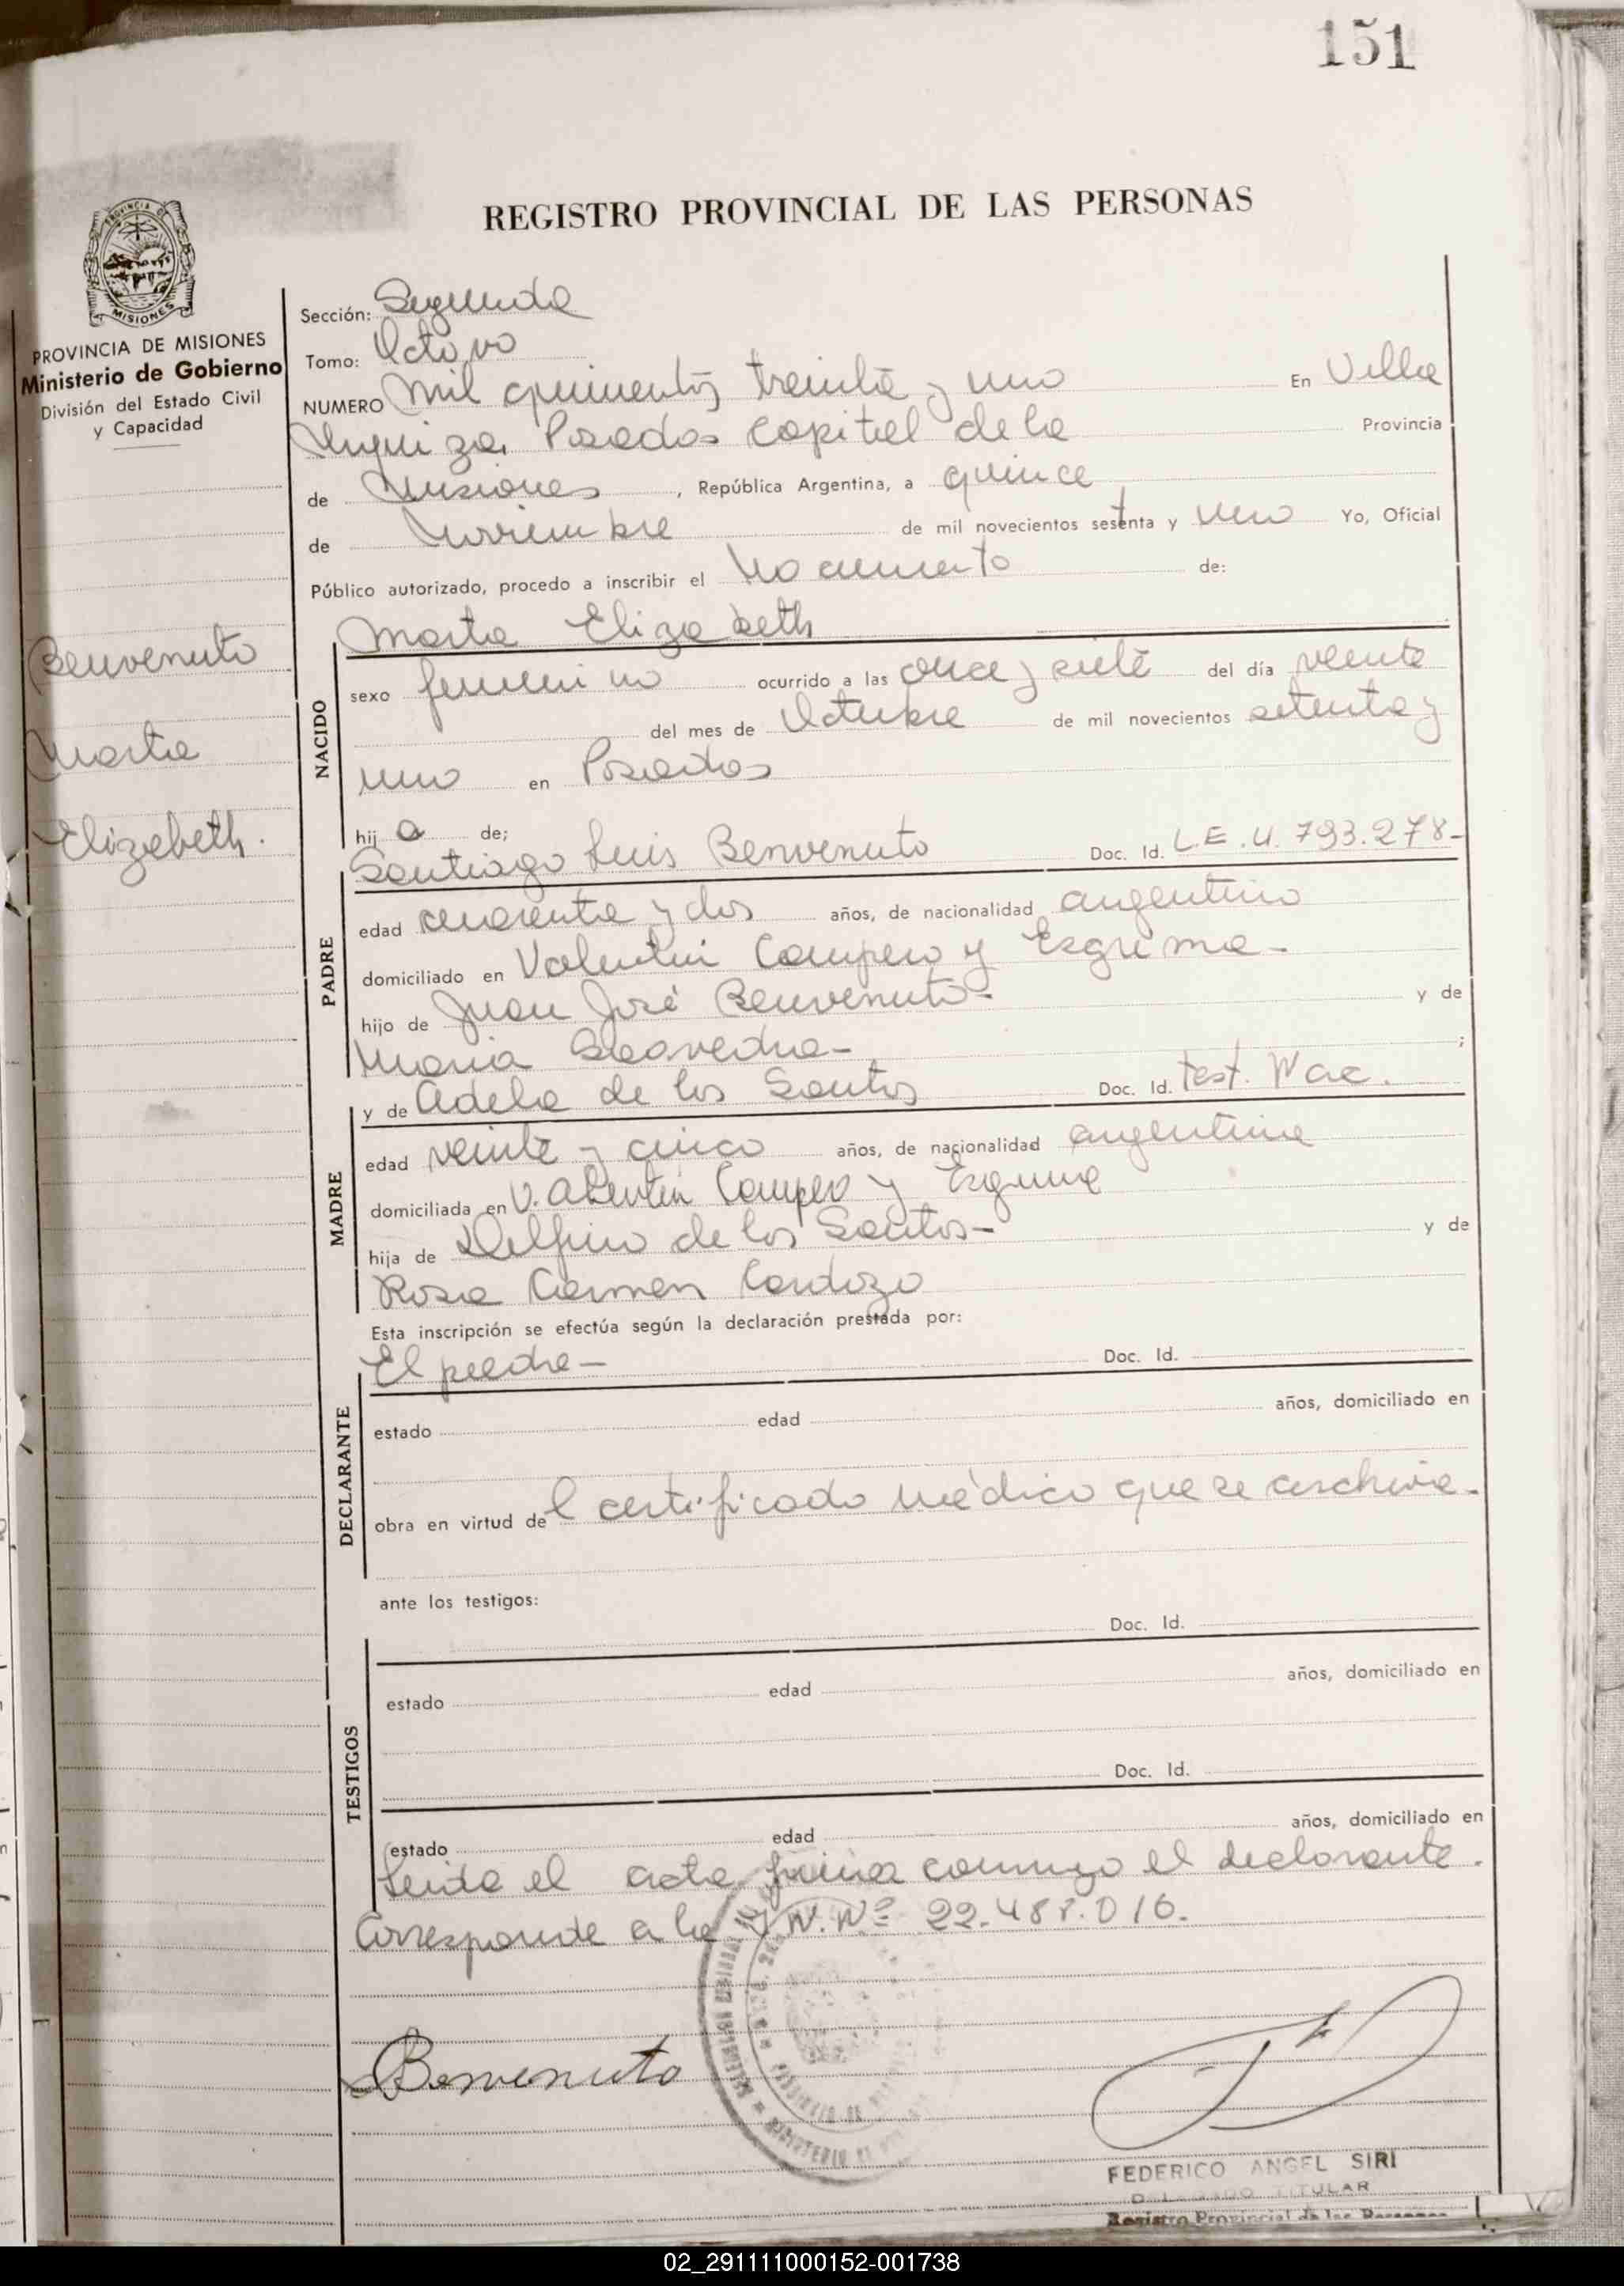 151
REGISTRO PROVINCIAL DE LAS PERSONAS
PROVINCIA DE
MISIONES
PROVINCIA DE MISIONES
Ministerio de Gobierno
División del Estado Civil
y Capacidad
Benvenuto
Marta
Elizabeth.
Sección: Segunda
Tomo: Octavo
NUMERO Mil quinientos treinta y uno En Villa
Urquiza, Posadas Capital de la Provincia
de Misiones, República Argentina, a quince
de Noviembre de mil novecientos setenta y uno Yo, Oficial
Público autorizado, procedo a inscribir el Nacimiento de:
Marta Elizabeth
NACIDO
sexo femenino ocurrido a las once y siete del día veinte
del mes de Octubre de mil novecientos setenta y
uno en Posadas
hij a de;
Santiago Luis Benvenuto Doc. Id. L.E. 4.793.278-
PADRE
edad cuarenta y dos años, de nacionalidad argentino
domiciliado en Valentin Campero y Esgrima-
hijo de Juan José Benvenuto- y de
Maria Saavedra- ;
y de Adela de los Santos Doc. Id. test. Nac.
MADRE
edad veinte y cinco años, de nacionalidad argentina
domiciliada en V.alentin Campero y Esgrima
hija de Delfino de los Santos- y de
Rosa Carmen Cardozo
Esta inscripción se efectúa según la declaración prestada por:
El padre- Doc. Id.
DECLARANTE
estado edad años, domiciliado en
obra en virtud del certificado médico que se archiva-
ante los testigos:
Doc. Id.
TESTIGOS
estado edad años, domiciliado en
Doc. Id.
estado edad años, domiciliado en
Leida el acta firma conmigo el declarante.
Corresponde a la I N. Nº 22.488.016.
Benvenuto
FEDERICO ANGEL SIRI
DELEGADO TITULAR
Registro Provincial de las Personas
02_291111000152-001738